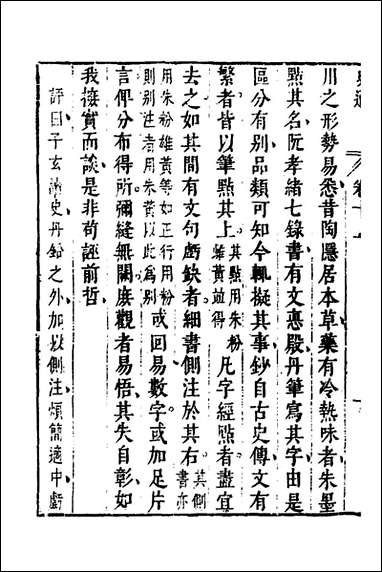 川之形勢易悉昔陶隱居本草藥有冷熱味者朱墨
點其名阮孝緒七錄書有文悳殿丹筆寫其字由是
區分有別品類可知今輒擬其事鈔自古史傳文有
繁者皆以筆點其上其點用朱粉雌黃並得凡字經點者盡宜
去之如其間有文句虧缺者細書側注於其右其側書亦
用朱粉雌黃等如正行用粉則別注者用朱黃以此爲別或回易數字或加足片
言俾分布得所彌縫無闕庻觀者易悟其失自彰如
我摭實而談是非苟誣前哲
評曰子玄論史丹鉛之外加以側注煩簡適中虧